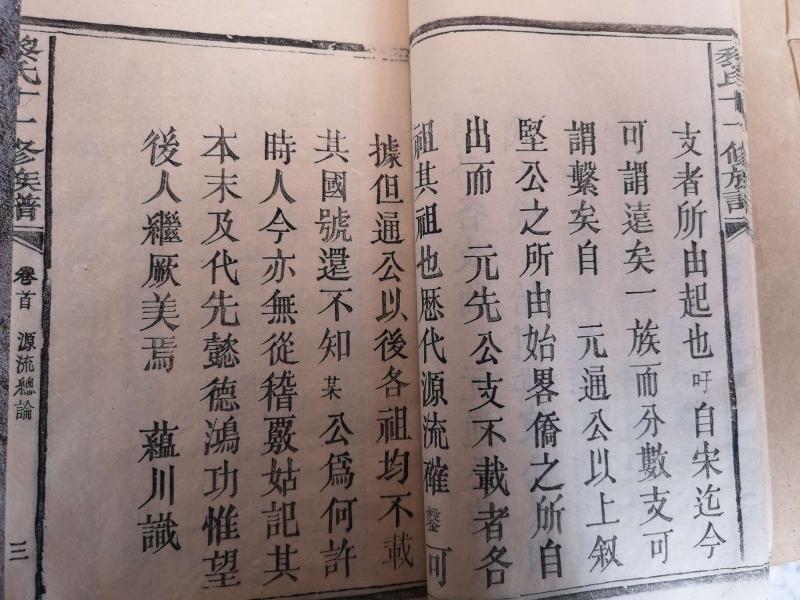 黎氏十一修族譜
支者所由起也吁自宋迄今
可謂遠矣一族而分數支可
謂繫矣自　元通公以上叙
堅公之所由始畧僑之所自
出而　元先公支不載者各
祖其祖也歷代源流確鑿可
據但通公以後各祖均不載
其國號還不知某公爲何許
時人今亦無從稽覈姑記其
本末及代先懿德鴻功惟望
後人繼厥美焉　蘊川識
黎氏十一修族譜　卷首　源流總論　三